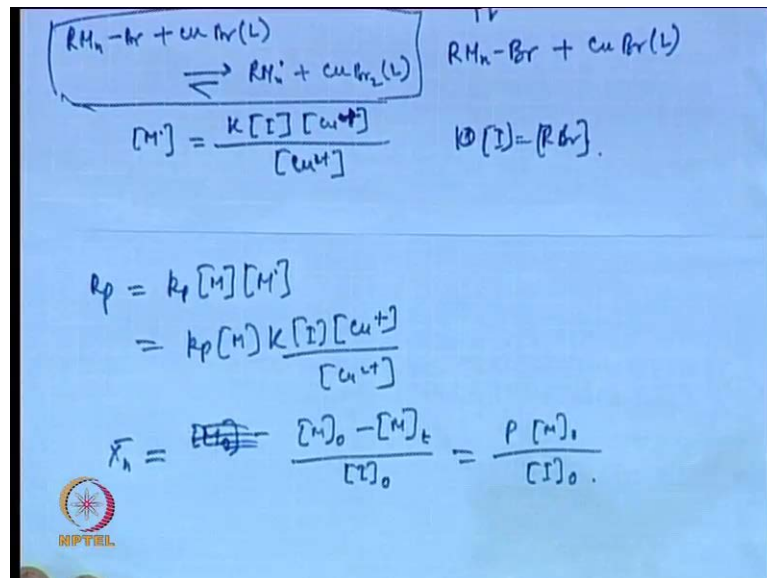 RMn-Br + CuBr(L)
⇌ RMn· + CuBr2(L)
RMn-Br + CuBr(L)
[M·] = K[I][Cu+] / [Cu2+]
[I] = [RBr].
Rp = kp[M][M·]
= kp[M]K[I][Cu+] / [Cu2+]
X̄n = [M]0 - [M]t / [I]0 = P[M]0 / [I]0.
NPTEL